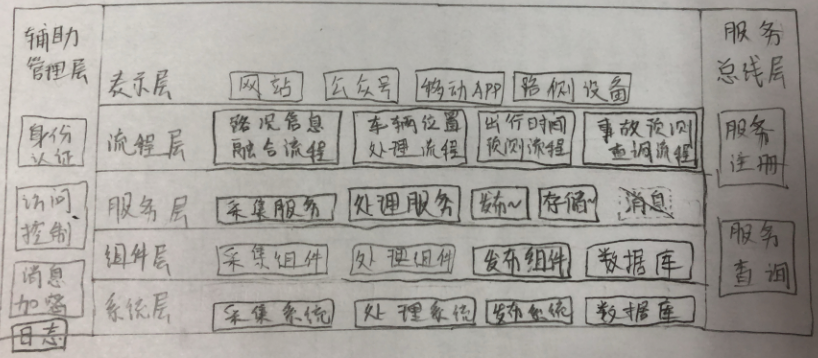 辅助
管理层
身份
认证
访问
控制
消息
加密
日志
表示层 网站 公众号 移动APP 路侧设备
流程层 路况信息 车辆位置 出行时间 事故预测
融合流程 处理流程 预测流程 查询流程
服务层 采集服务 处理服务 发布~ 存储~ 消息
组件层 采集组件 处理组件 发布组件 数据库
系统层 采集系统 处理系统 发布系统 数据库
服务
总线层
服务
注册
服务
查询